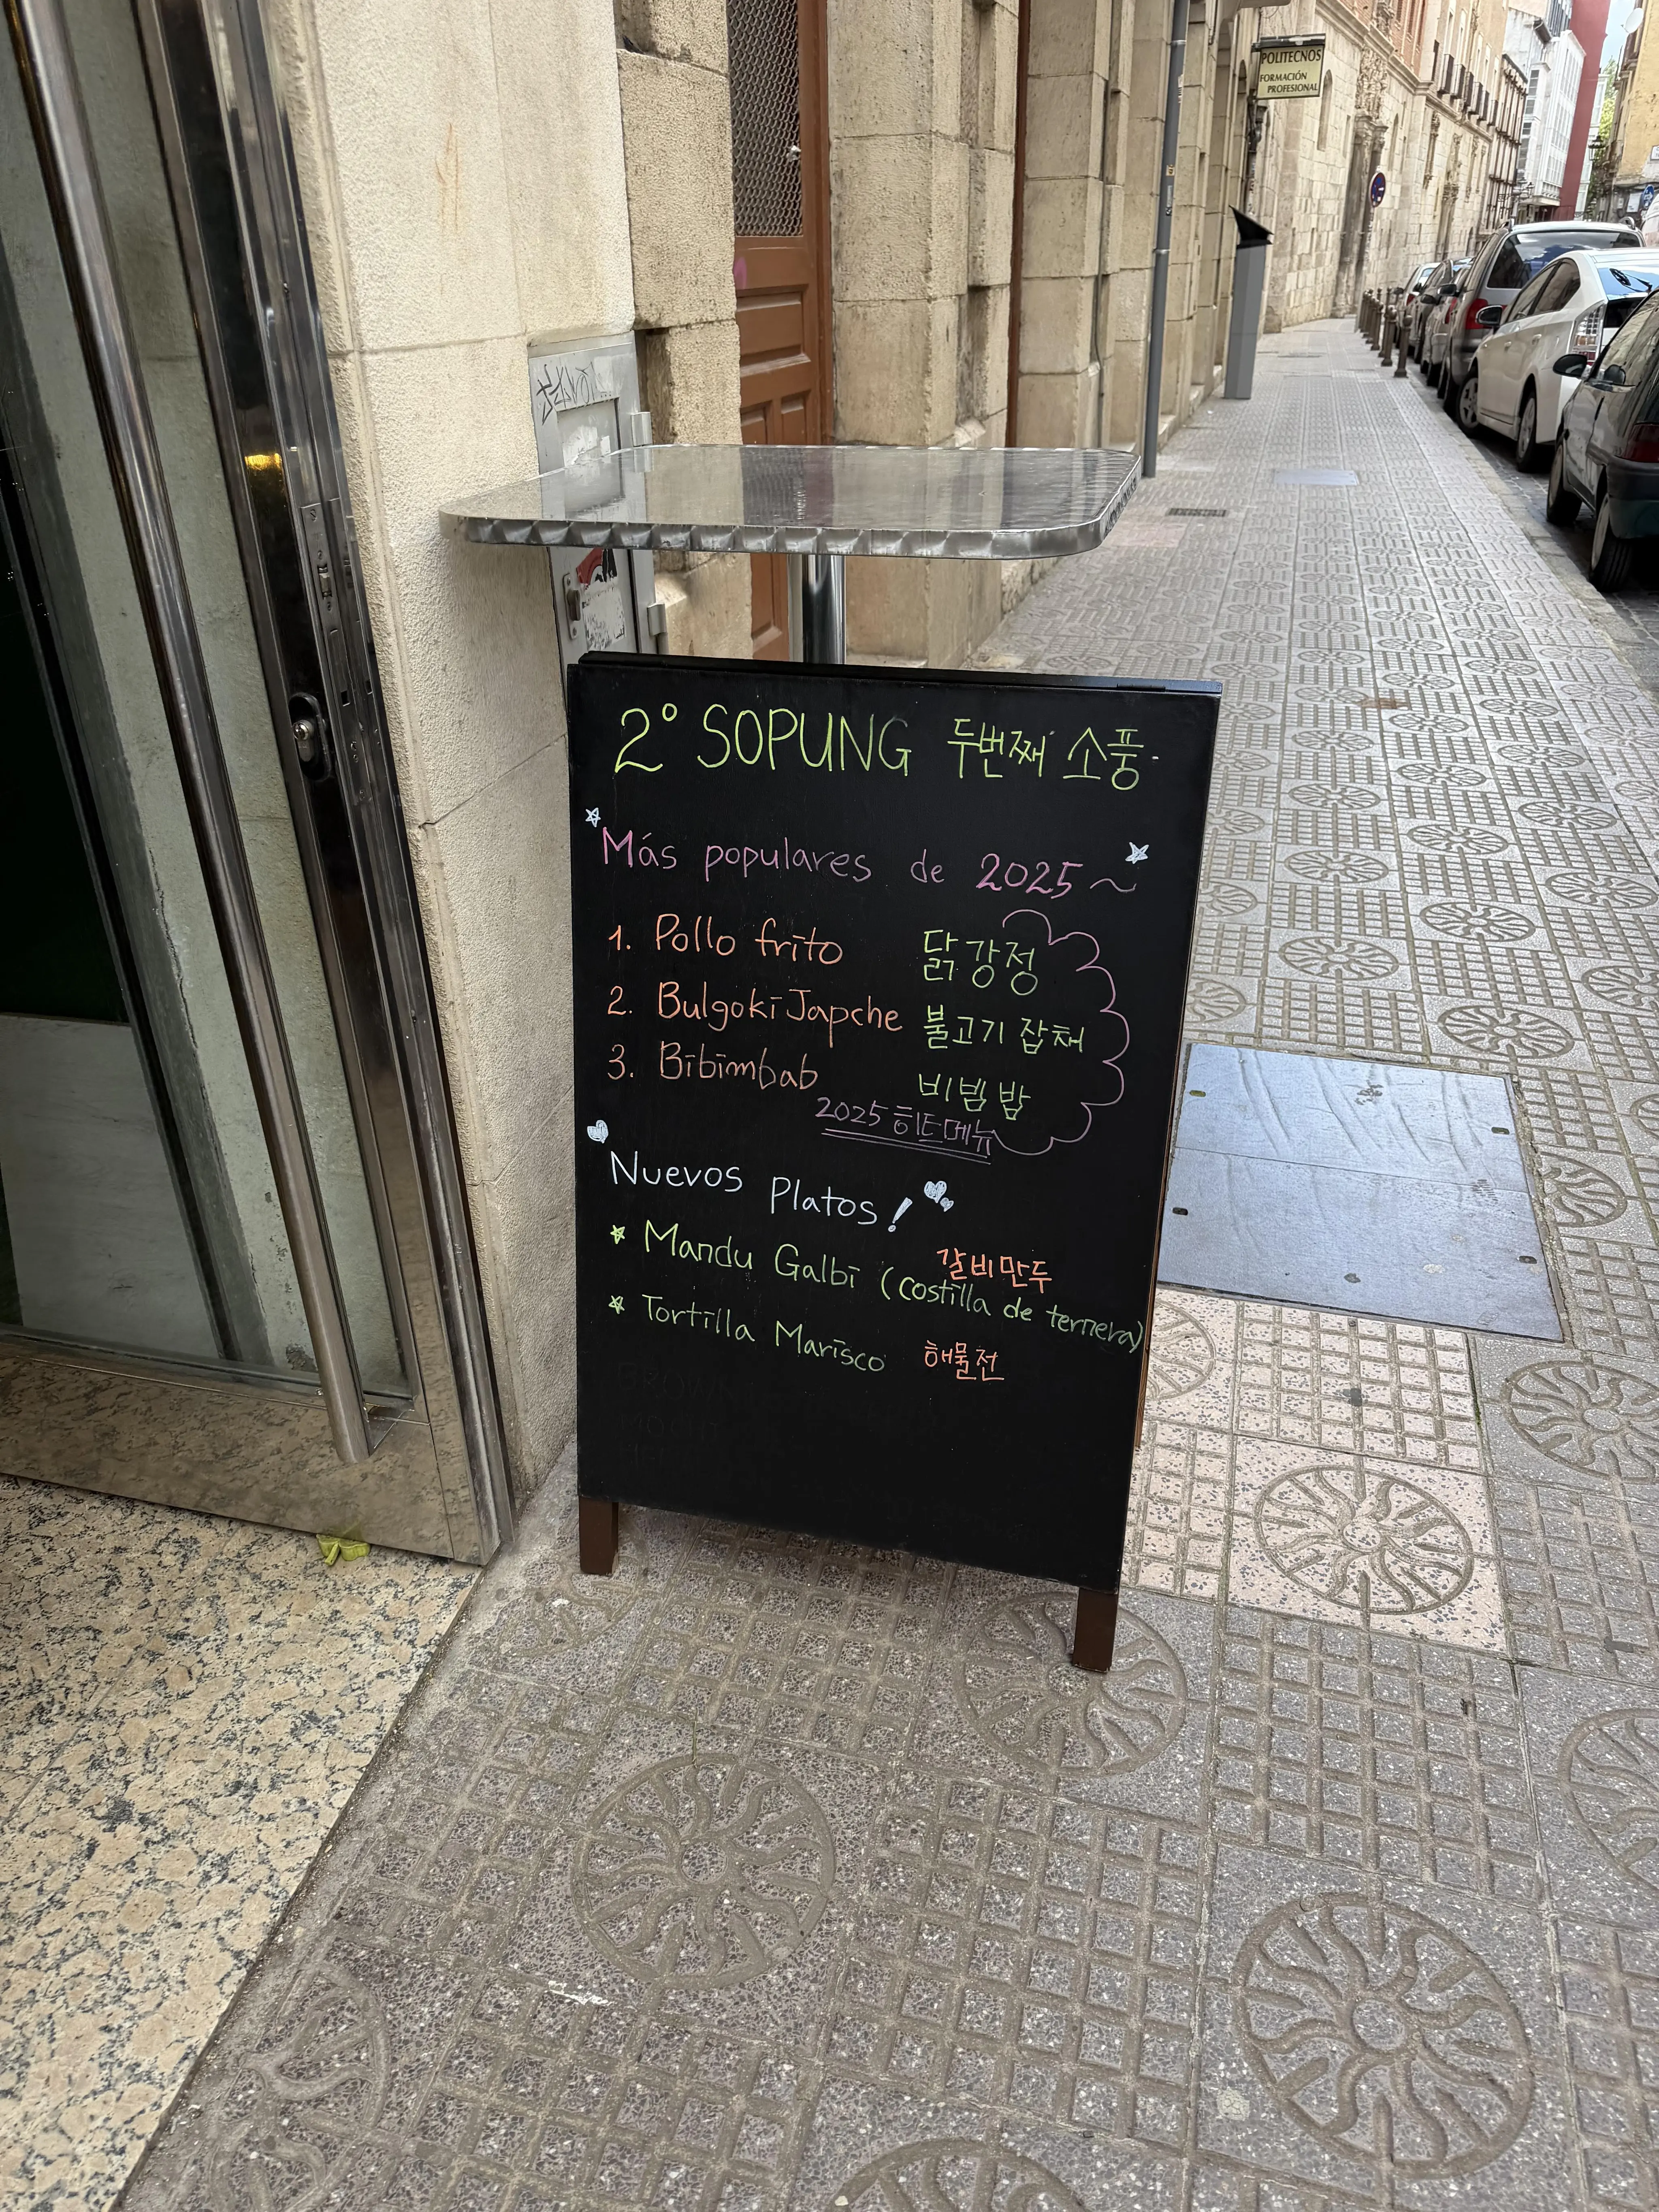 POLITECNOS
FORMACIÓN
PROFESIONAL
2º SOPUNG 두번째 소풍.
Más populares de 2025~
1. Pollo frito 닭강정
2. Bulgoki Japche 불고기 잡채
3. Bibimbab 비빔밥
2025 히트메뉴
Nuevos Platos!
Mandu Galbi (costilla de ternera) 갈비만두
Tortilla Marisco 해물전